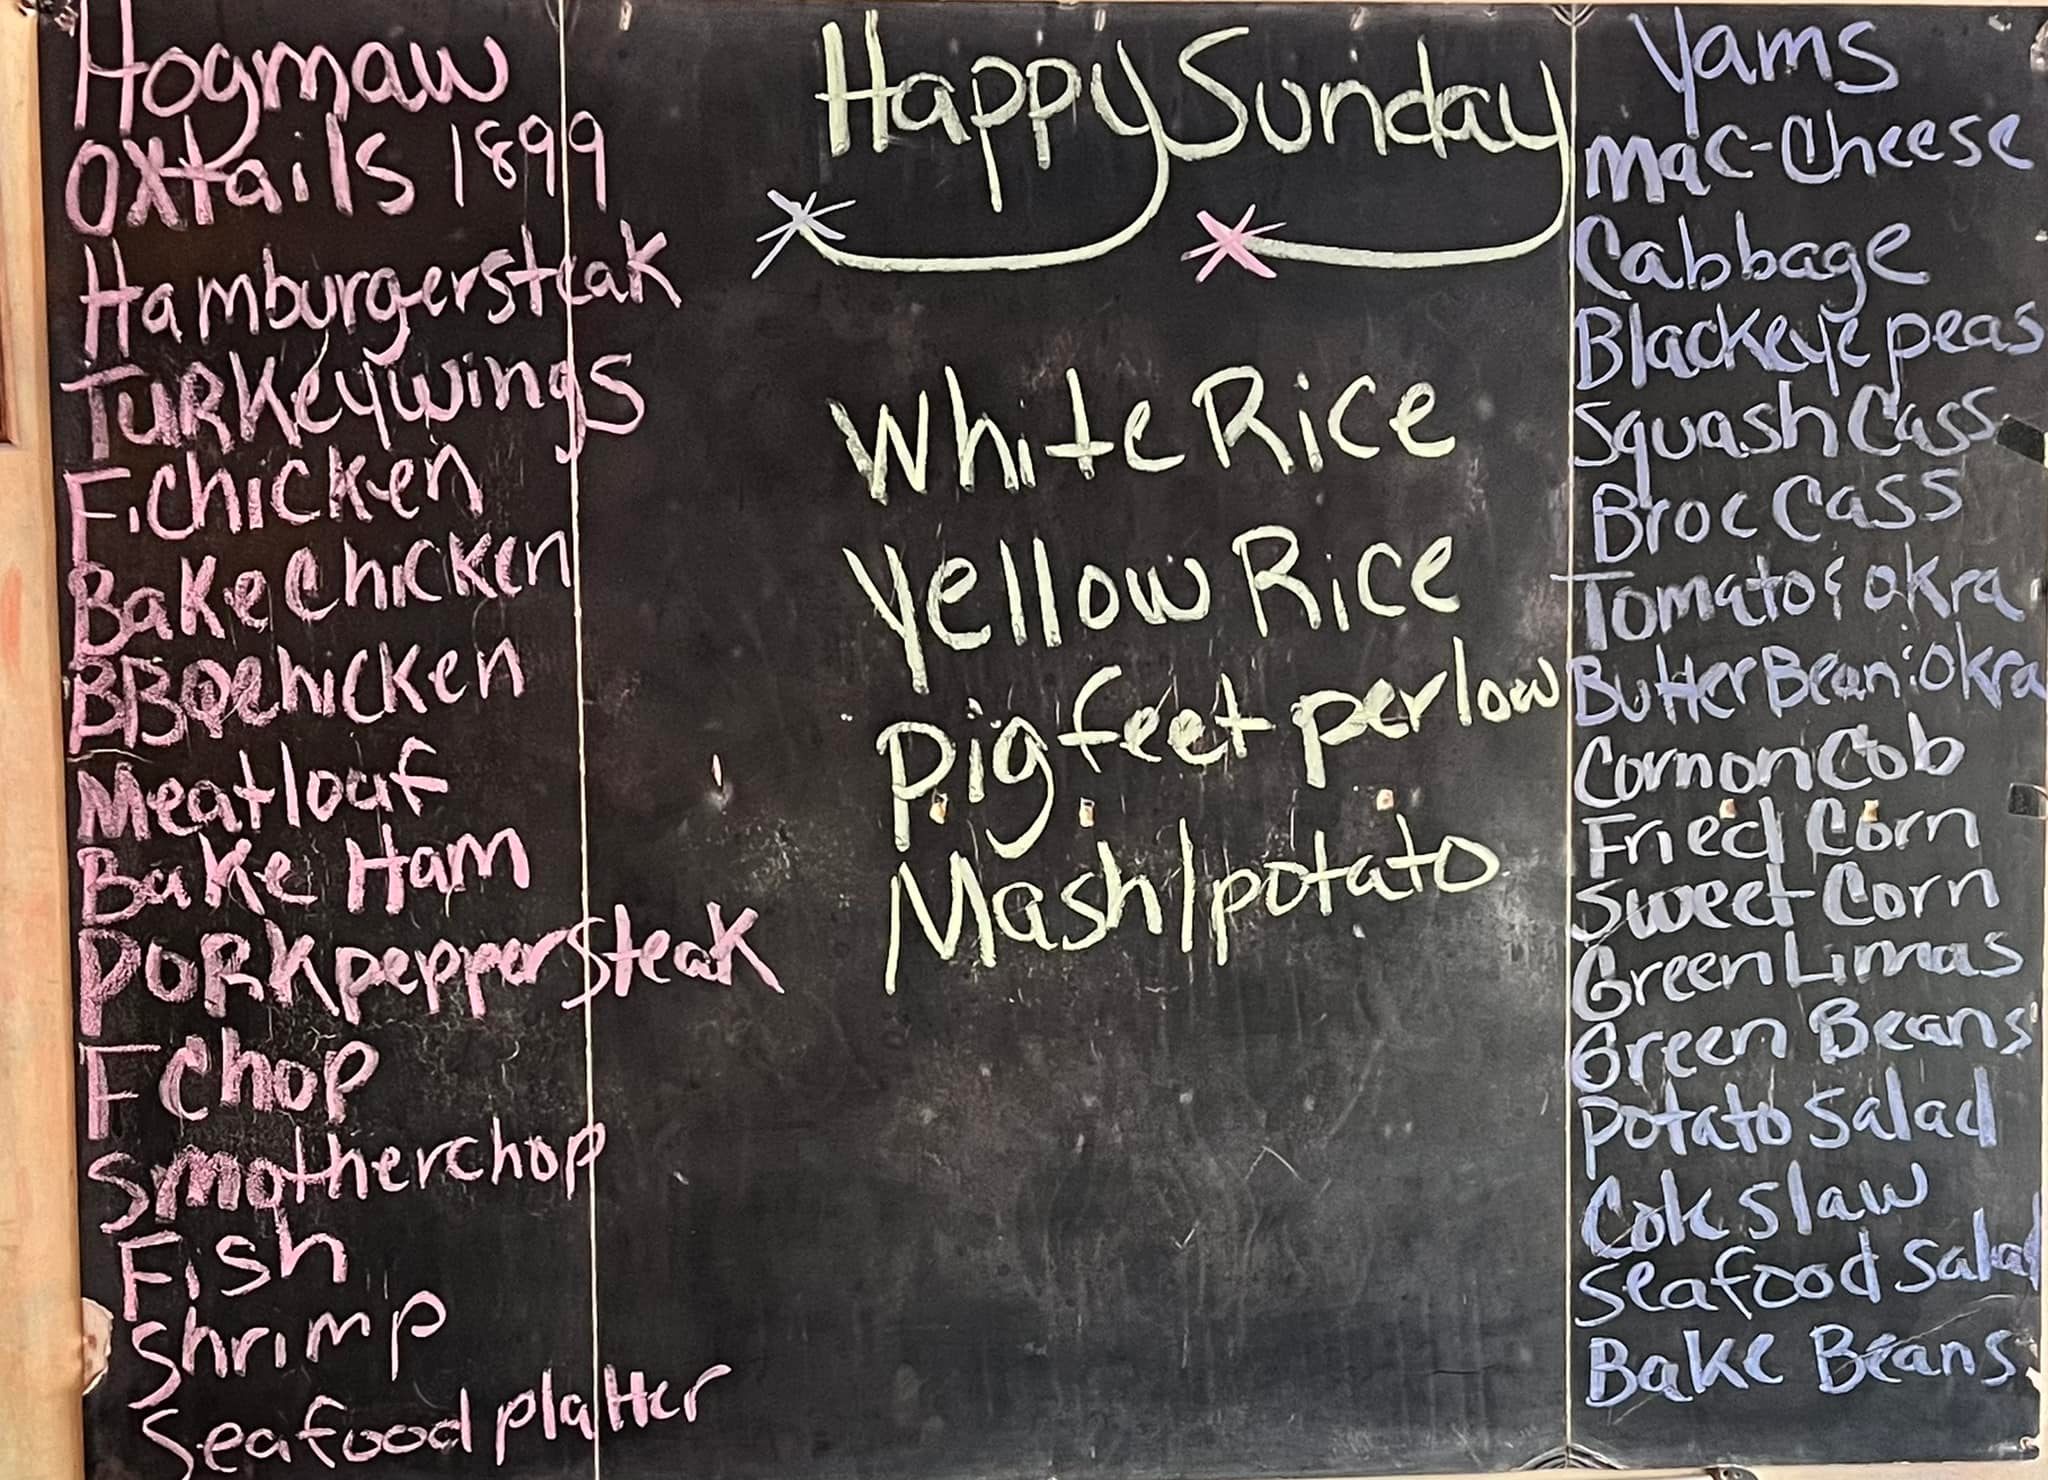 Hogmaw
Oxtails 1899
Hamburgersteak
Turkeywings
F.Chicken
Bake Chicken
BBQchicken
Meatloaf
Bake Ham
Porkpeppersteak
F Chop
Smotherchop
Fish
Shrimp
Seafood platter
Happy Sunday
White Rice
Yellow Rice
Pig feet perlow
Mash/potato
Yams
Mac-Cheese
Cabbage
Blackeye peas
Squash Cass
Broc Cass
Tomato & okra
Butter Bean: Okra
Corn on Cob
Fried Corn
Sweet Corn
Green Limas
Green Beans
Potato Salad
Cole slaw
Seafood Salad
Bake Beans